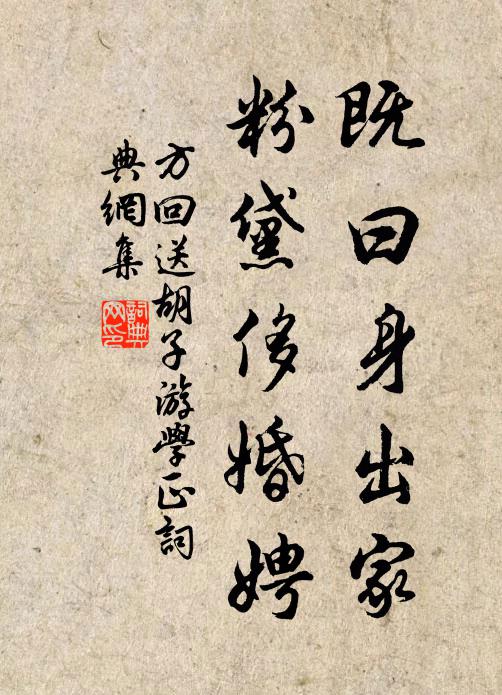 既曰身出家
粉黛侈婚娉
方回送胡子游學正詞
典網集
詞典
网印